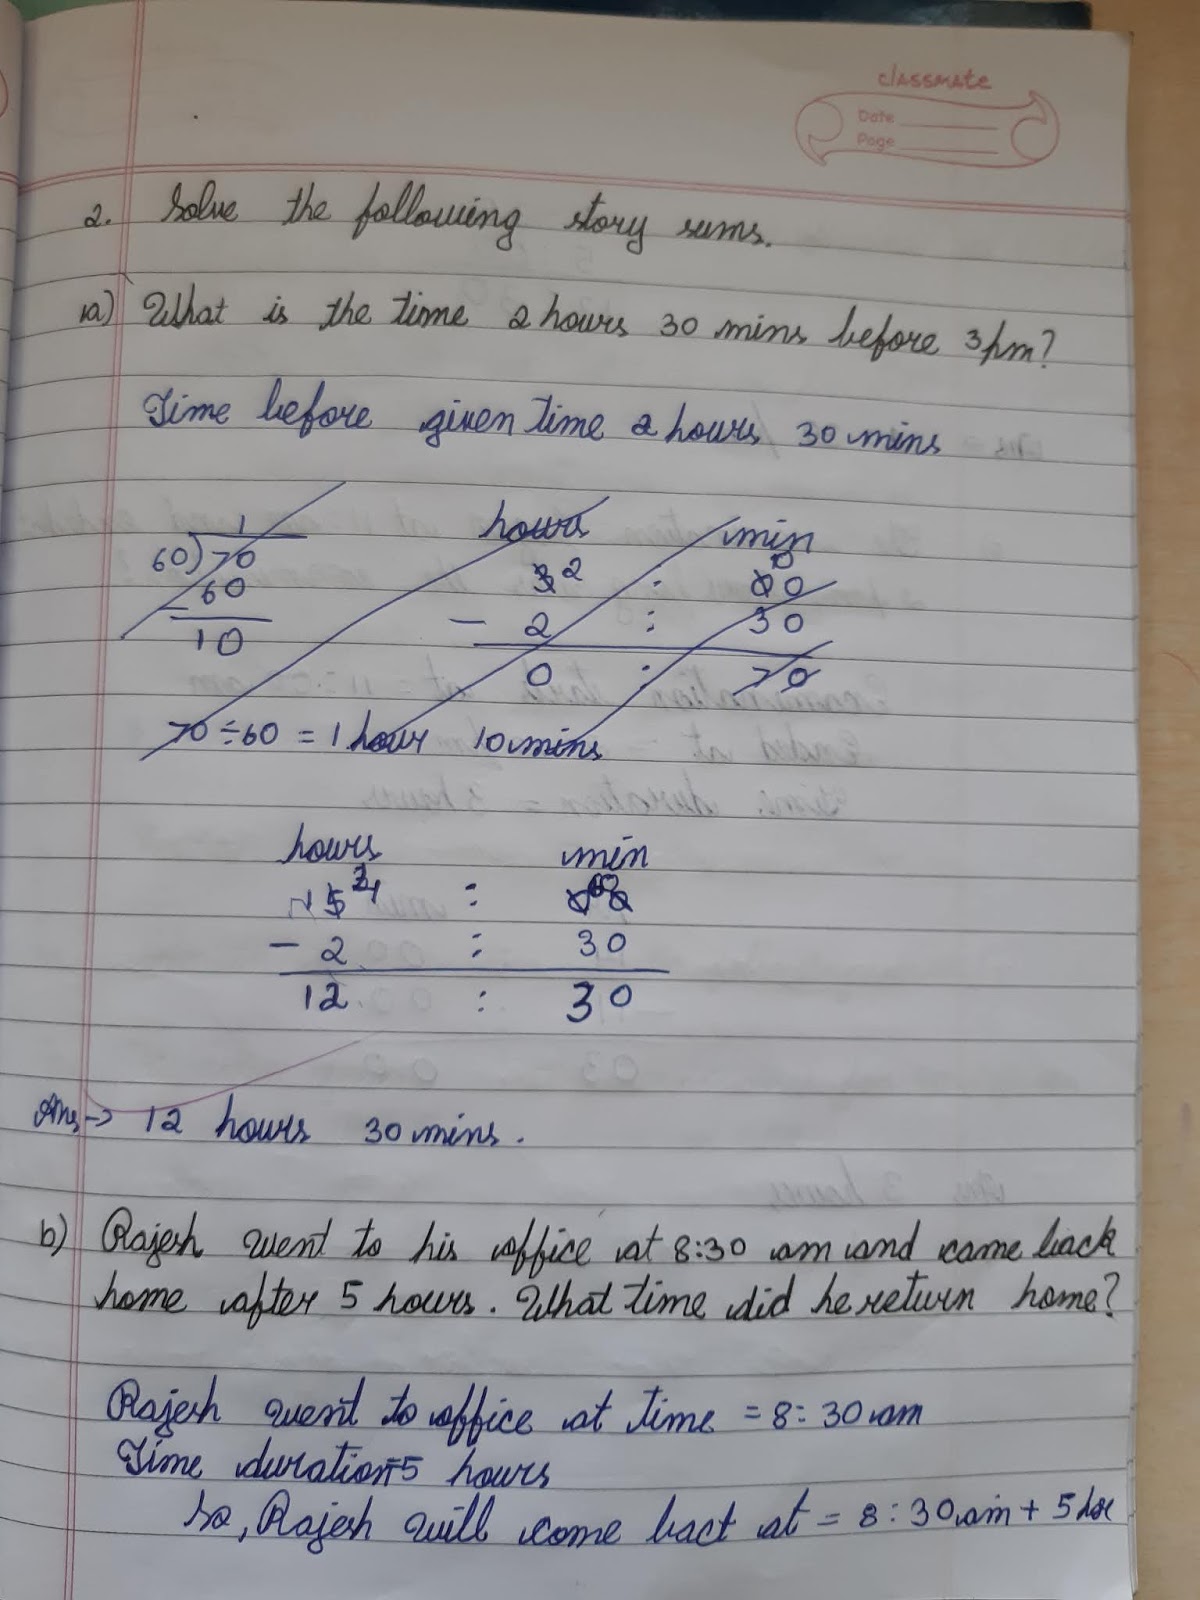 classmate
Date
Page
2. Solve the following story sums.
a) What is the time 2 hours 30 mins before 3pm?
Time before given time 2 hours 30 mins
1
60)70
- 60
10
hours min
3 2 : 00
- 2 : 30
0 : 70
70 ÷ 60 = 1 hour 10 mins
hours min
15 :
- 2 : 30
12 : 30
Ans → 12 hours 30 mins.
b) Rajesh went to his office at 8:30 am and came back
home after 5 hours. What time did he return home?
Rajesh went to office at time = 8:30 am
Time duration = 5 hours
So, Rajesh will come bact at = 8:30 am + 5 hrs